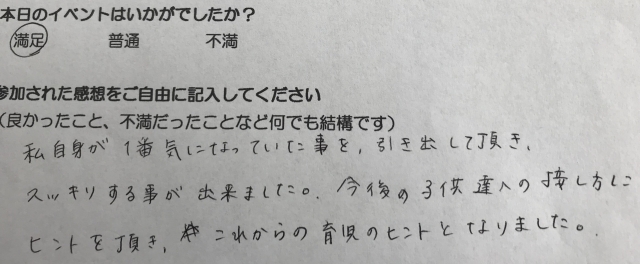 本日のイベントはいかがでしたか？
満足 普通 不満
参加された感想をご自由に記入してください
（良かったこと、不満だったことなど何でも結構です）
私自身が1番気になっていた事を、引き出して頂き、
スッキリする事が出来ました。今後の子供達への接し方に
ヒントを頂き、これからの育児のヒントとなりました。